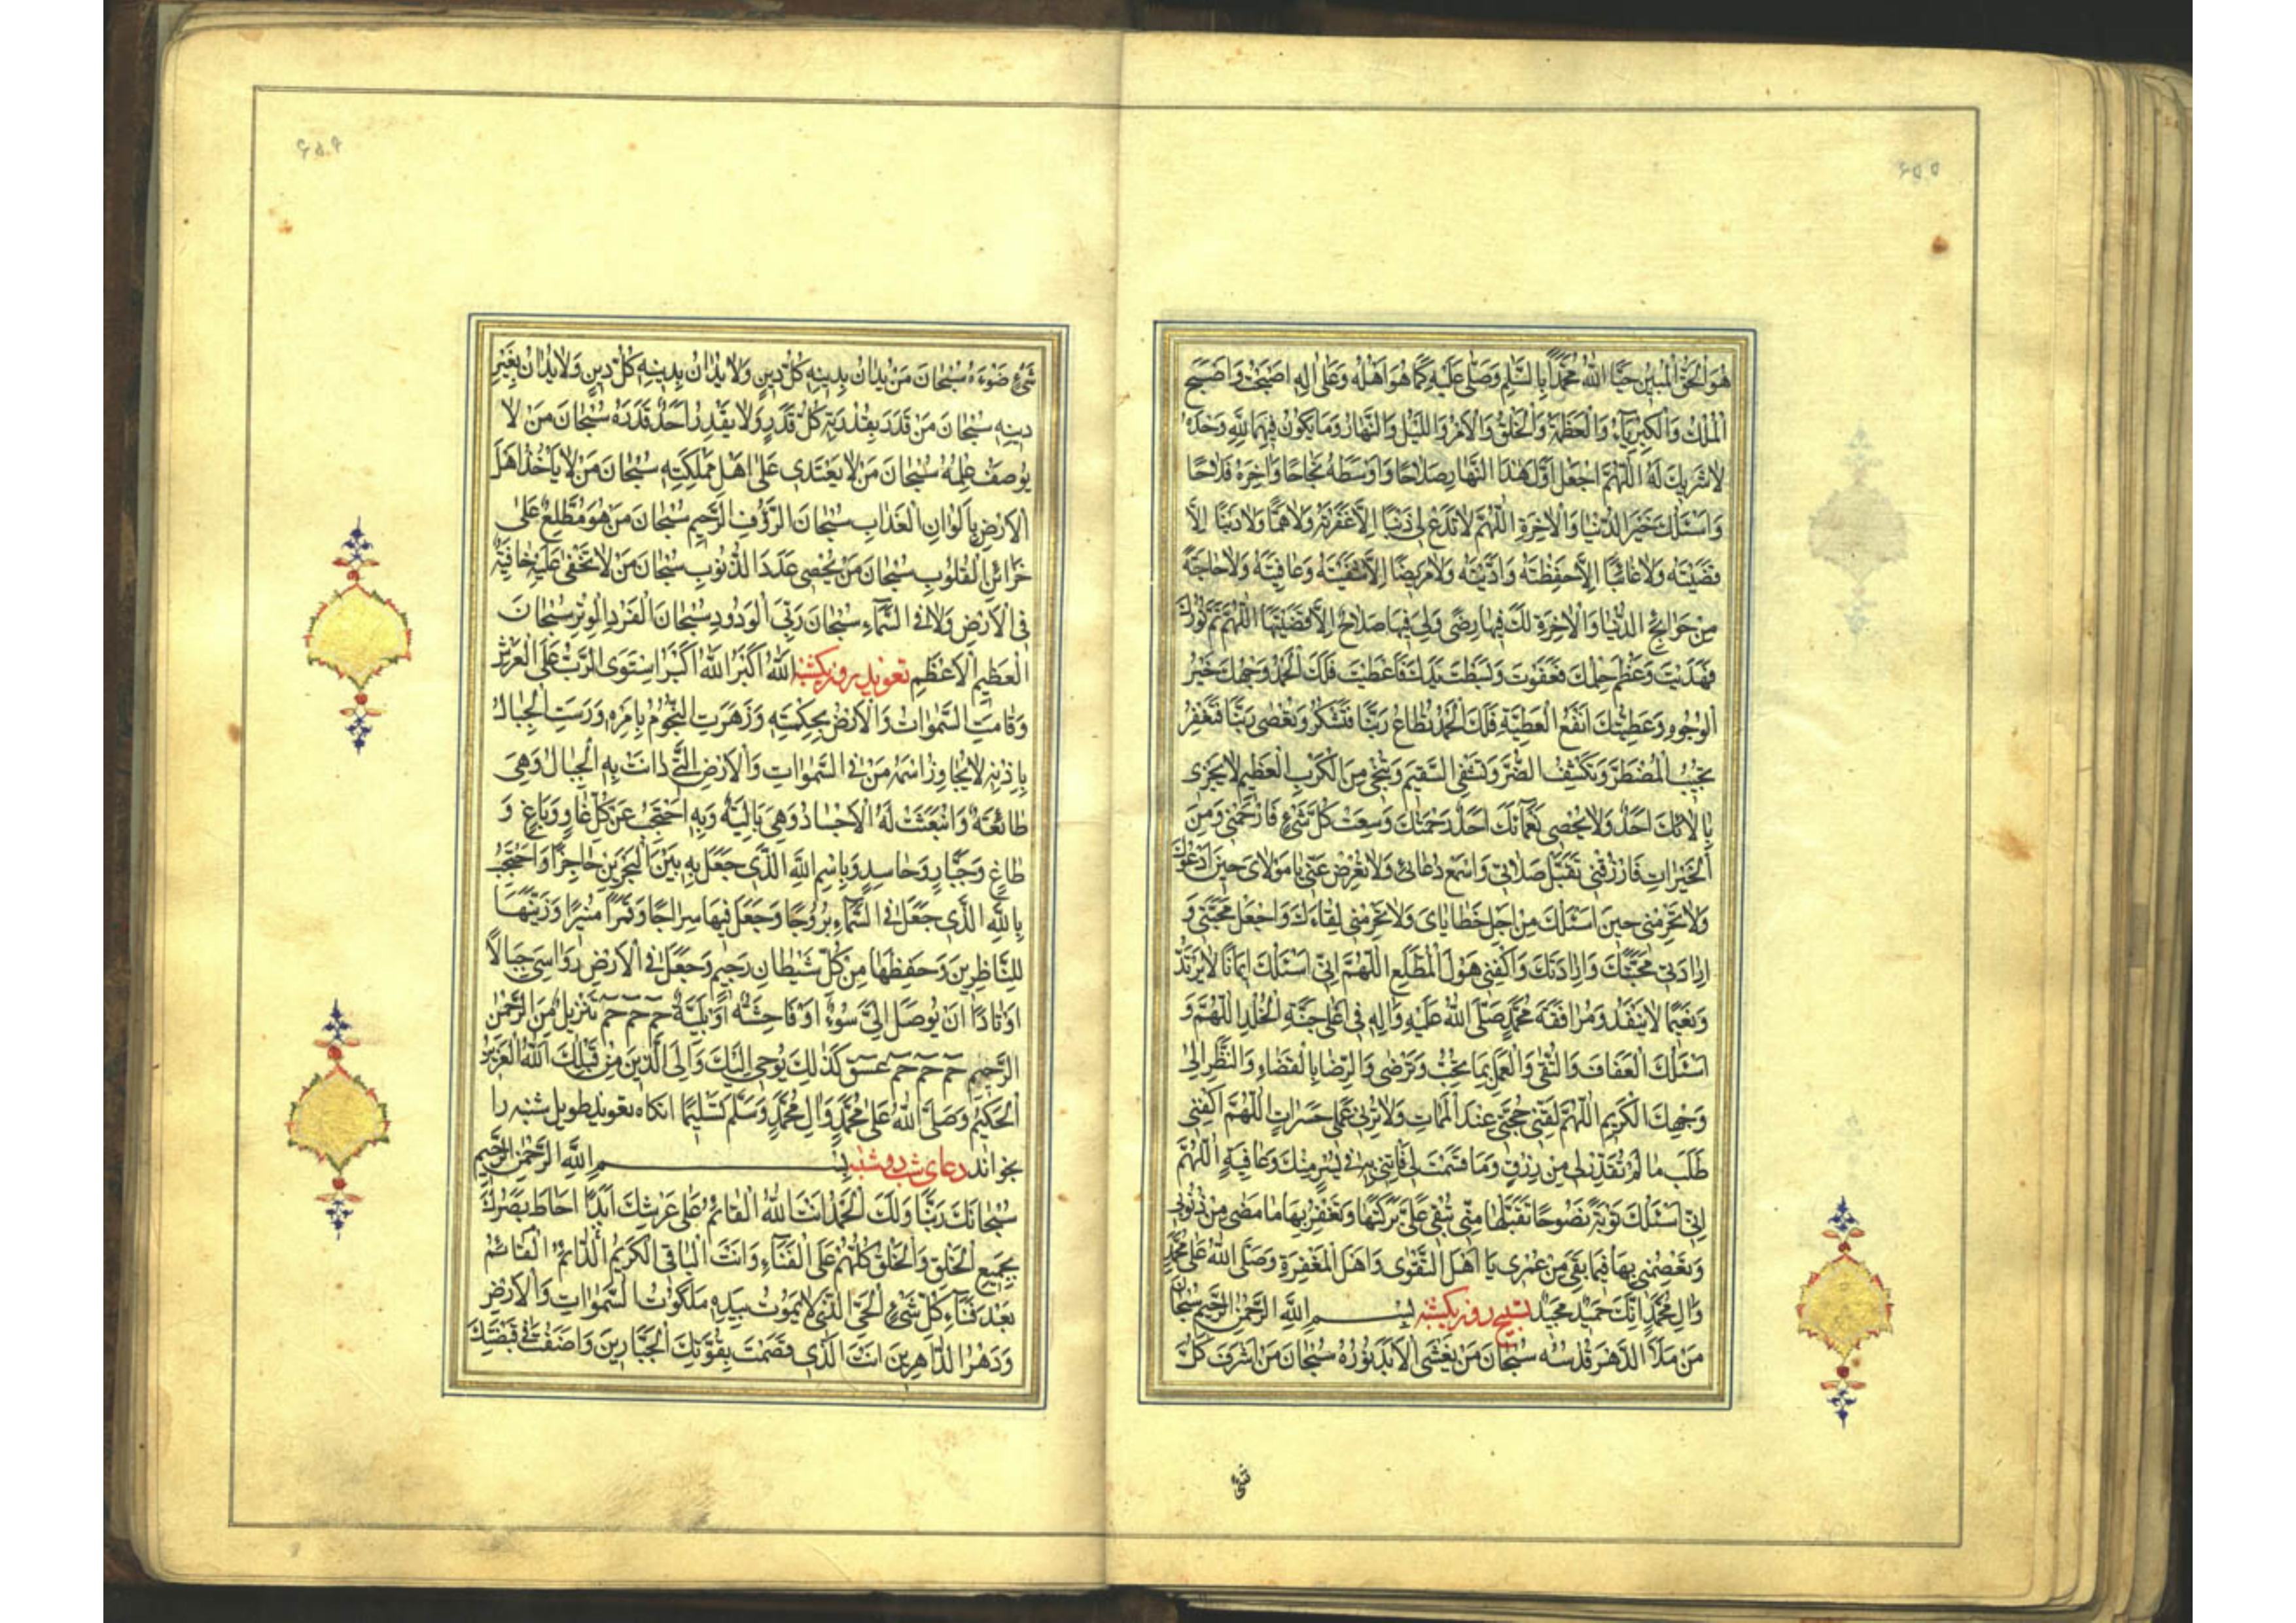 ۶۵۵
هُوَ الْحَقُّ الْمُبِينُ حَيَّا اللّٰهُ مُحَمَّدًا بِالسَّلٰمِ وَصَلّٰى عَلَيْهِ كَمَا هُوَ اَهْلُهُ وَعَلٰى اٰلِهِ اَصْبَحْتُ وَاَصْبَحَ
الْمُلْكُ وَالْكِبْرِيَاءُ وَالْعَظَمَةُ وَالْخَلْقُ وَالْاَمْرُ وَاللَّيْلُ وَالنَّهَارُ وَمَا يَكُونُ فِيهِمَا لِلّٰهِ وَحْدَهُ
لَا شَرِيكَ لَهُ اَللّٰهُمَّ اجْعَلْ اَوَّلَ هٰذَا النَّهَارِ صَلَاحًا وَاَوْسَطَهُ نَجَاحًا وَاٰخِرَهُ فَلَاحًا
وَاَسْئَلُكَ خَيْرَ الدُّنْيَا وَالْاٰخِرَةِ اَللّٰهُمَّ لَا تَدَعْ لِى ذَنْبًا اِلَّا غَفَرْتَهُ وَلَا هَمًّا وَلَا دَيْنًا اِلَّا
قَضَيْتَهُ وَلَا غَائِبًا اِلَّا حَفِظْتَهُ وَاَدَّيْتَهُ وَلَا مَرِيضًا اِلَّا شَفَيْتَهُ وَعَافَيْتَهُ وَلَا حَاجَةً
مِنْ حَوَائِجِ الدُّنْيَا وَالْاٰخِرَةِ لَكَ فِيهَا رِضًى وَلِىَ فِيهَا صَلَاحٌ اِلَّا قَضَيْتَهَا اَللّٰهُمَّ تَمَّ نُورُكَ
فَهَدَيْتَ وَعَظُمَ حِلْمُكَ فَعَفَوْتَ وَبَسَطْتَ يَدَكَ فَاَعْطَيْتَ فَلَكَ الْحَمْدُ وَجْهُكَ خَيْرُ
الْوُجُوهِ وَعَطِيَّتُكَ اَنْفَعُ الْعَطِيَّةِ فَلَكَ الْحَمْدُ تُطَاعُ رَبَّنَا فَتَشْكُرُ وَتُعْصٰى رَبَّنَا فَتَغْفِرُ
تُجِيبُ الْمُضْطَرَّ وَتَكْشِفُ الضُّرَّ وَتَشْفِى السَّقِيمَ وَتُنْجِى مِنَ الْكَرْبِ الْعَظِيمِ لَا يَجْزِى
بِاٰلَائِكَ اَحَدٌ وَلَا يُحْصِى نَعْمَائَكَ اَحَدٌ رَحْمَتُكَ وَسِعَتْ كُلَّ شَىْءٍ فَارْحَمْنِى وَمِنَ
الْخَيْرَاتِ فَارْزُقْنِى تَقَبَّلْ صَلَاتِى وَاسْمَعْ دُعَائِى وَلَا تُعْرِضْ عَنِّى يَا مَوْلَاىَ حِينَ اَدْعُوكَ
وَلَا تَحْرِمْنِى حِينَ اَسْئَلُكَ مِنْ اَجْلِ خَطَايَاىَ وَلَا تَحْرِمْنِى لِقَاءَكَ وَاجْعَلْ مَحَبَّتِى وَ
اِرَادَتِى مَحَبَّتَكَ وَاِرَادَتَكَ وَاكْفِنِى هَوْلَ الْمُطَّلَعِ اَللّٰهُمَّ اِنِّى اَسْئَلُكَ اِيمَانًا لَا يَرْتَدُّ
وَنَعِيمًا لَا يَنْفَدُ وَمُرَافَقَةَ مُحَمَّدٍ صَلَّى اللّٰهُ عَلَيْهِ وَاٰلِهِ فِى اَعْلٰى جَنَّةِ الْخُلْدِ اَللّٰهُمَّ وَ
اَسْئَلُكَ الْعَفَافَ وَالتُّقٰى وَالْعَمَلَ بِمَا تُحِبُّ وَتَرْضٰى وَالرِّضَا بِالْقَضَاءِ وَالنَّظَرَ اِلٰى
وَجْهِكَ الْكَرِيمِ اَللّٰهُمَّ لَقِّنِى حُجَّتِى عِنْدَ الْمَمَاتِ وَلَا تُرِنِى عَمَلِى حَسَرَاتٍ اَللّٰهُمَّ اكْفِنِى
طَلَبَ مَا لَمْ تُقَدِّرْ لِى مِنْ رِزْقٍ وَمَا قَسَمْتَ لِى فَاٰتِنِى بِهِ فِى يُسْرٍ مِنْكَ وَعَافِيَةٍ اَللّٰهُمَّ
اِنِّى اَسْئَلُكَ تَوْبَةً نَصُوحًا تَقَبَّلُهَا مِنِّى تُبْقِى عَلَىَّ بَرَكَتَهَا وَتَغْفِرُ بِهَا مَا مَضٰى مِنْ ذُنُوبِى
وَتَعْصِمُنِى بِهَا فِيمَا بَقِىَ مِنْ عُمْرِى يَا اَهْلَ التَّقْوٰى وَاَهْلَ الْمَغْفِرَةِ وَصَلَّى اللّٰهُ عَلٰى مُحَمَّدٍ
وَاٰلِ مُحَمَّدٍ اِنَّكَ حَمِيدٌ مَجِيدٌ تسبيح روز يكشنبه بِسْمِ اللّٰهِ الرَّحْمٰنِ الرَّحِيمِ سُبْحَانَ
مَنْ مَلَأَ الدَّهْرَ قُدْسُهُ سُبْحَانَ مَنْ يَغْشَى الْاَبَدَ نُورُهُ سُبْحَانَ مَنْ اَشْرَقَ كُلَّ
شىء
۶۵۶
شَىْءٍ ضَوْءُهُ سُبْحَانَ مَنْ يُدَانُ بِدِينِهِ كُلُّ دِينٍ وَلَا يُدَانُ بِدِينِهِ كُلُّ دِينٍ وَلَا يُدَانُ بِغَيْرِ
دِينِهِ سُبْحَانَ مَنْ قَدَرَ بِقُدْرَتِهِ كُلَّ قَدَرٍ وَلَا يَقْدِرُ اَحَدٌ قَدْرَهُ سُبْحَانَ مَنْ لَا
يُوصَفُ عِلْمُهُ سُبْحَانَ مَنْ لَا يَعْتَدِى عَلٰى اَهْلِ مَمْلَكَتِهِ سُبْحَانَ مَنْ لَا يَأْخُذُ اَهْلَ
الْاَرْضِ بِاَلْوَانِ الْعَذَابِ سُبْحَانَ الرَّؤُفِ الرَّحِيمِ سُبْحَانَ مَنْ هُوَ مُطَّلِعٌ عَلٰى
خَزَائِنِ الْقُلُوبِ سُبْحَانَ مَنْ يُحْصِى عَدَدَ الذُّنُوبِ سُبْحَانَ مَنْ لَا تَخْفٰى عَلَيْهِ خَافِيَةٌ
فِى الْاَرْضِ وَلَا فِى السَّمَاءِ سُبْحَانَ رَبِّىَ الْوَدُودِ سُبْحَانَ الْفَرْدِ الْوِتْرِ سُبْحَانَ
الْعَظِيمِ الْاَعْظَمِ تعويذ روز يكشنبه اَللّٰهُ اَكْبَرُ اَللّٰهُ اَكْبَرُ اسْتَوَى الرَّبُّ عَلَى الْعَرْشِ
وَقَامَتِ السَّمٰوَاتُ وَالْاَرْضُ بِحِكْمَتِهِ وَزَهَرَتِ النُّجُومُ بِاَمْرِهِ وَرَسَتِ الْجِبَالُ
بِاِذْنِهِ لَا يُجَاوِزُ اسْمَهُ مَنْ فِى السَّمٰوَاتِ وَالْاَرْضِ الَّذِى دَانَتْ بِهِ الْجِبَالُ وَهِىَ
طَائِعَةٌ وَانْبَعَثَتْ لَهُ الْاَجْسَادُ وَهِىَ بَالِيَةٌ وَبِهِ اَحْتَجِبُ عَنْ كُلِّ غَاوٍ وَبَاغٍ وَ
طَاغٍ وَجَبَّارٍ وَحَاسِدٍ وَبِاسْمِ اللّٰهِ الَّذِى جَعَلَ بِهِ بَيْنَ الْبَحْرَيْنِ حَاجِزًا وَاَحْتَجِبُ
بِاللّٰهِ الَّذِى جَعَلَ فِى السَّمَاءِ بُرُوجًا وَجَعَلَ فِيهَا سِرَاجًا وَقَمَرًا مُنِيرًا وَزَيَّنَهَا
لِلنَّاظِرِينَ وَحَفِظَهَا مِنْ كُلِّ شَيْطَانٍ رَجِيمٍ وَجَعَلَ فِى الْاَرْضِ رَوَاسِىَ جِبَالًا
اَوْتَادًا اَنْ يُوصَلَ اِلَىَّ سُوءٌ اَوْ فَاحِشَةٌ اَوْ بَلِيَّةٌ حٰم حٰم حٰم تَنْزِيلٌ مِنَ الرَّحْمٰنِ
الرَّحِيمِ حٰم حٰم حٰم عسق كَذٰلِكَ يُوحِى اِلَيْكَ وَاِلَى الَّذِينَ مِنْ قَبْلِكَ اللّٰهُ الْعَزِيزُ
الْحَكِيمُ وَصَلَّى اللّٰهُ عَلٰى مُحَمَّدٍ وَاٰلِ مُحَمَّدٍ وَسَلَّمَ تَسْلِيمًا انكاه تعويذ طويل شنبه را
بخواند دعاى شب دوشنبه بِسْمِ اللّٰهِ الرَّحْمٰنِ الرَّحِيمِ
سُبْحَانَكَ رَبَّنَا وَلَكَ الْحَمْدُ اَنْتَ اللّٰهُ الْقَائِمُ عَلٰى عَرْشِكَ اَبَدًا اَحَاطَ بَصَرُكَ
بِجَمِيعِ الْخَلْقِ وَالْخَلْقُ كُلُّهُمْ عَلَى الْفَنَاءِ وَاَنْتَ الْبَاقِى الْكَرِيمُ الدَّائِمُ الْقَائِمُ
بَعْدَ فَنَاءِ كُلِّ شَىْءٍ الْحَىُّ الَّذِى لَا يَمُوتُ بِيَدِهِ مَلَكُوتُ السَّمٰوَاتِ وَالْاَرْضِ
وَدَهْرَ الدَّاهِرِينَ اَنْتَ الَّذِى قَصَمْتَ بِقُوَّتِكَ الْجَبَّارِينَ وَاَضَفْتَ فِى قَبْضَتِكَ